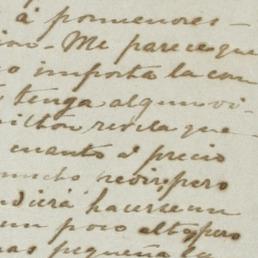 á pormenores-
ion. Me parece que
o importa la com
tenga algun vi-
milton revela que
cuanto á precio
mucho decir; pero
ndrá hacerse un
un poco alto, pero
mas pequeña la